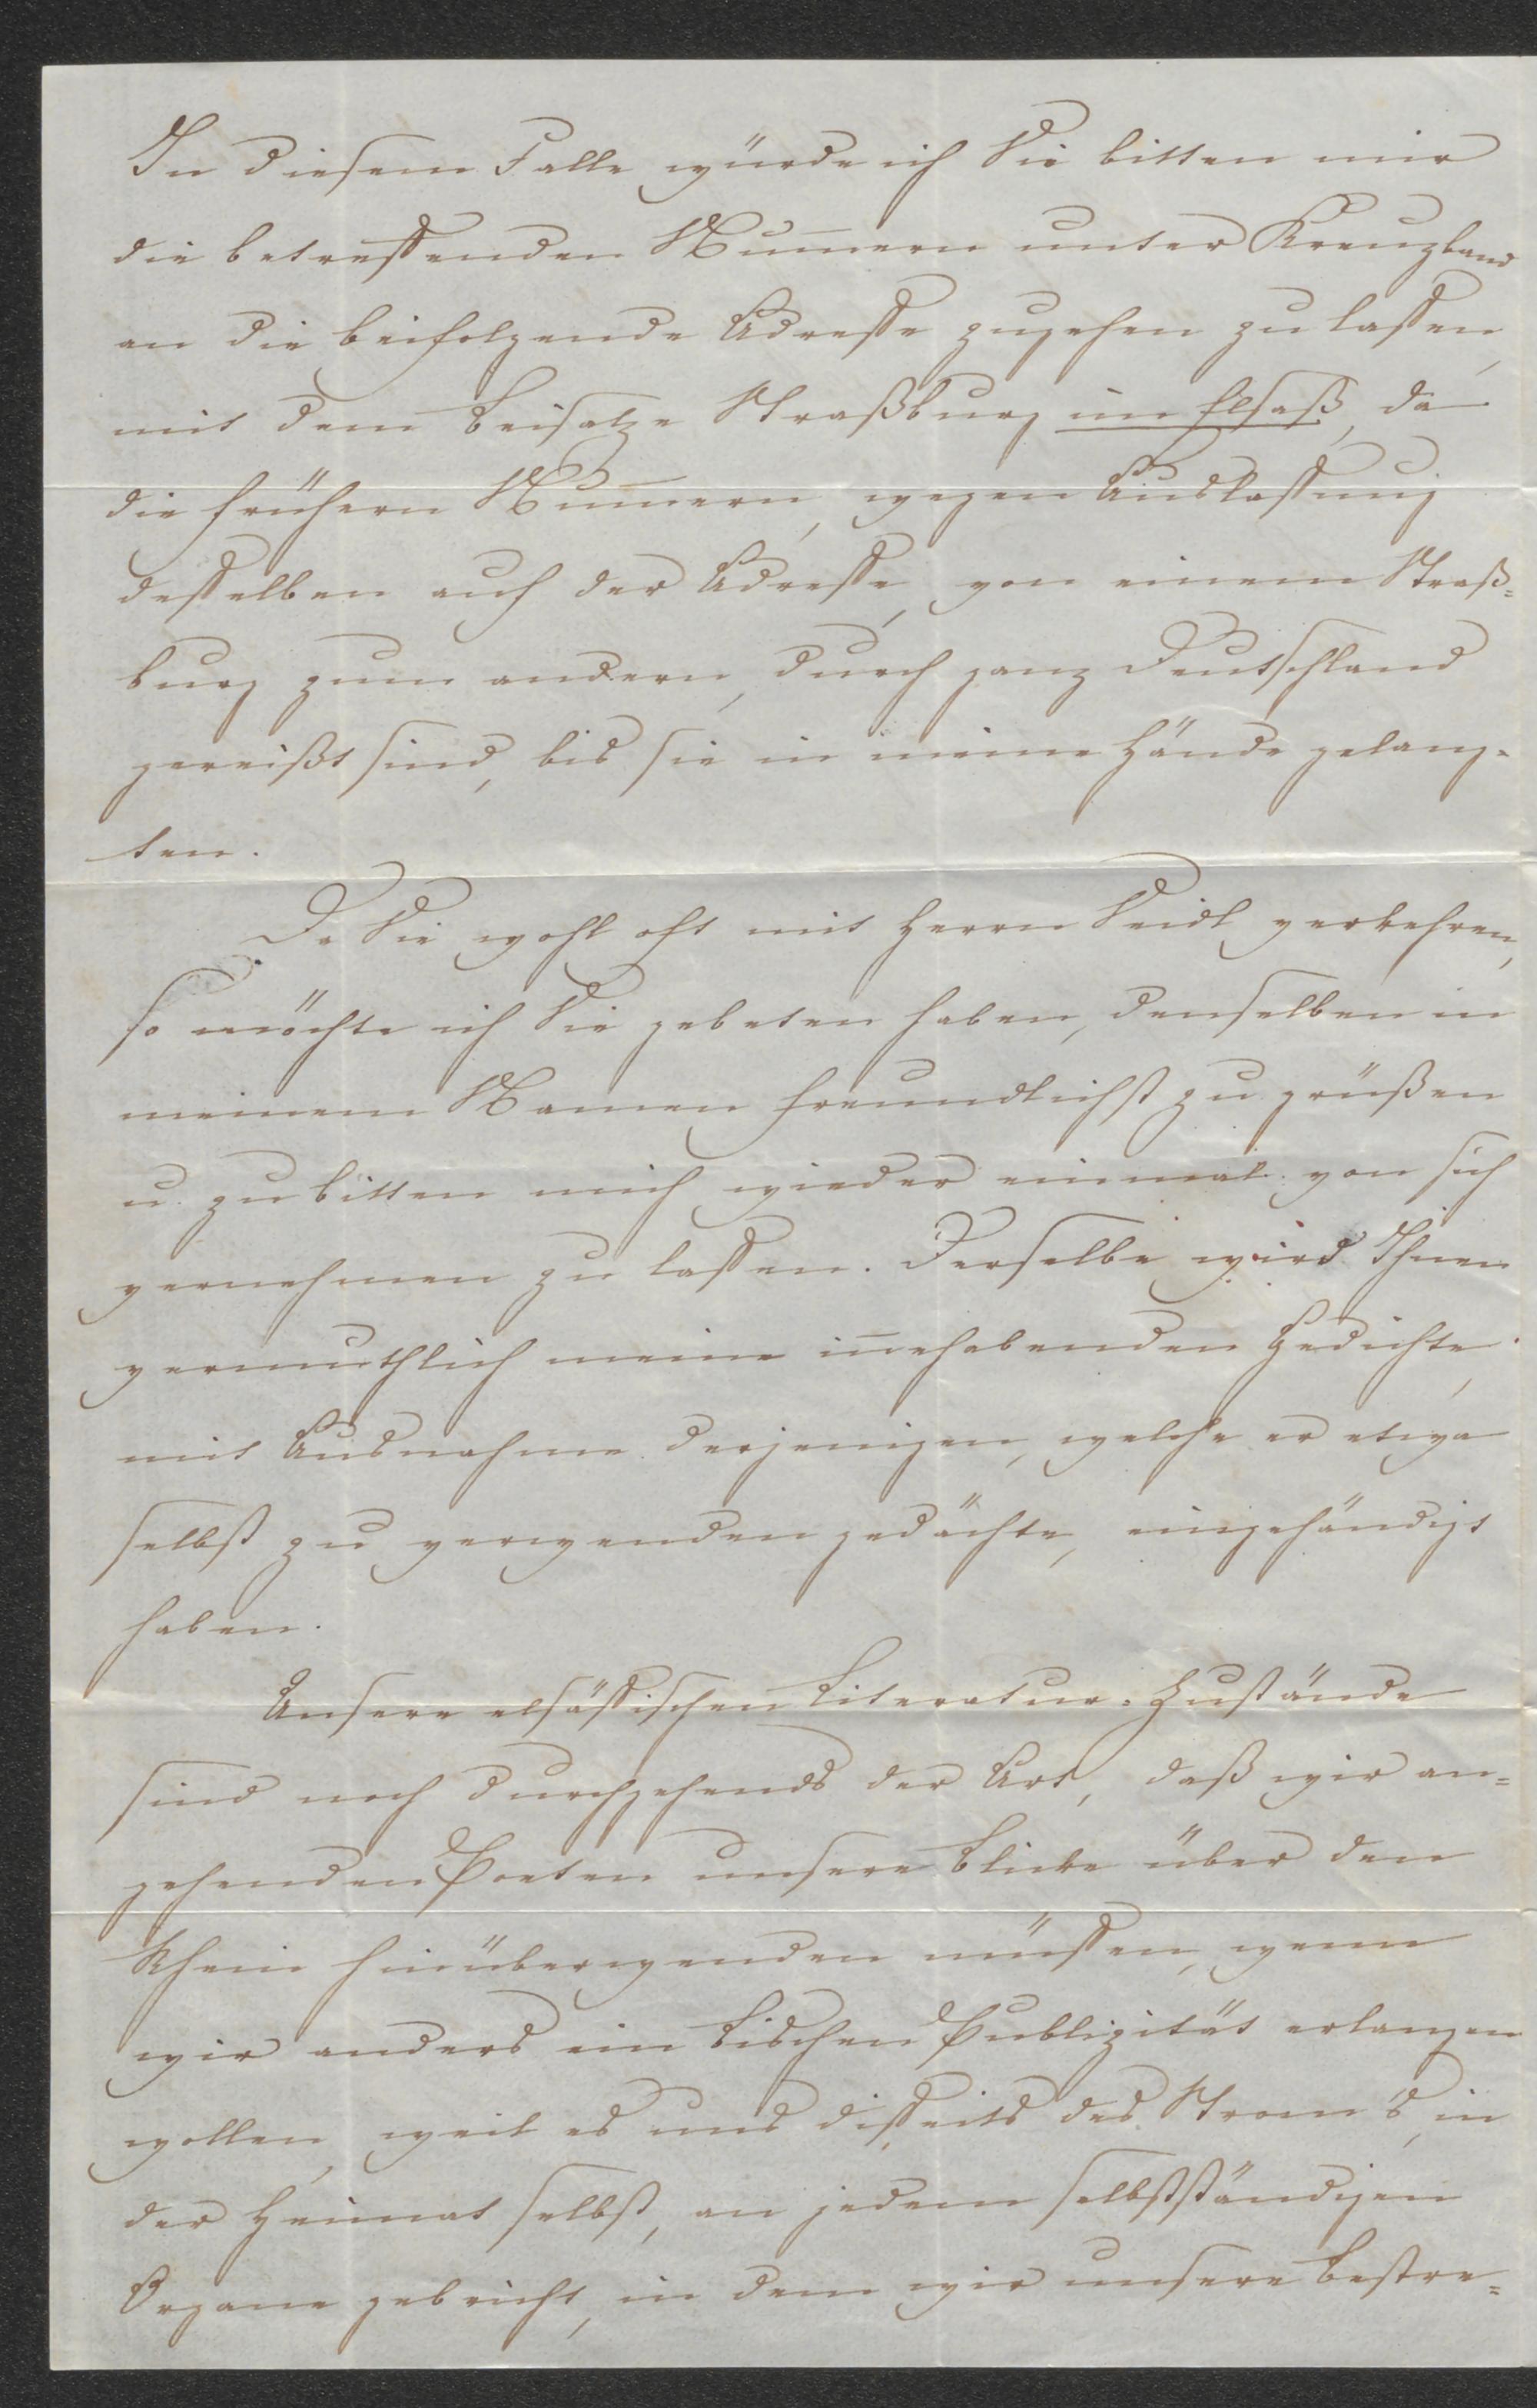 In diesem Falle würde ich Sie bitten mir
die betreffenden Num̄ern unter Kreuzband
an die beifolgende Adresse zugehen zu lassen,
mit dem Beisatze Straßburg im Elsaß, da
die frühern Num̄ern, wegen Auslassung
desselben auf der Adresse, von einem Straß=
burg zum andern, durch ganz Deutschland
gereißt sind, bis sie in meine Hände gelang=
ten.
Da Sie wohl oft mit Herrn Seidl verkehren,
so möchte ich Sie gebeten haben, denselben in
meinem Namen freundlichst zu grüßen
u. zu bitten mich wieder einmal von sich
vernehmen zu lassen. Derselbe wird Ihnen
vermuthlich meine in̄ehabenden Gedichte,
mit Ausnahme derjenigen, welche er etwa
selbst zu verwenden gedächte, eingehändigt
haben.
Unsere elsässischen Literatur=Zustände
sind noch durchgehends der Art, daß wir an=
gehenden Poeten unsere Blicke über den
Rhein hinüberwenden müssen, wenn
wir anders ein Bischen Publizität erlangen
wollen, weil es uns disseits des Strom's, in
der Heimat selbst, an jedem selbstständigen
Organe gebricht, in dem wir unsere Bestre=